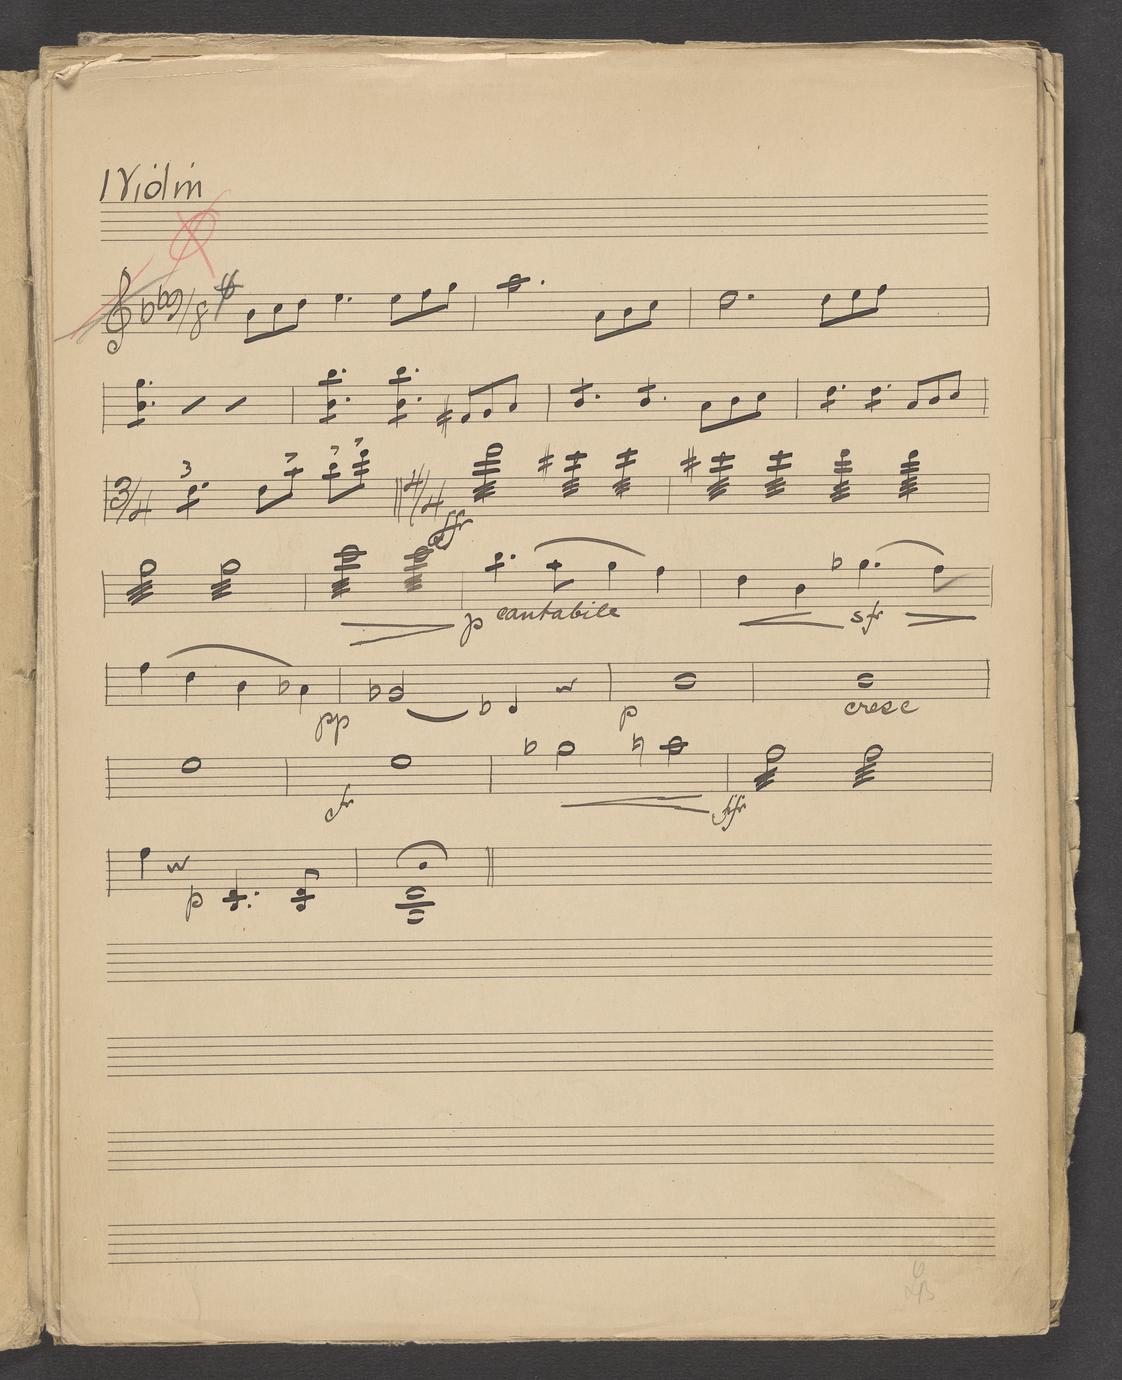 1 Violin
3
3/4 4/4
ffr
p cantabile sfr
pp p cresc
sfr ffr
p